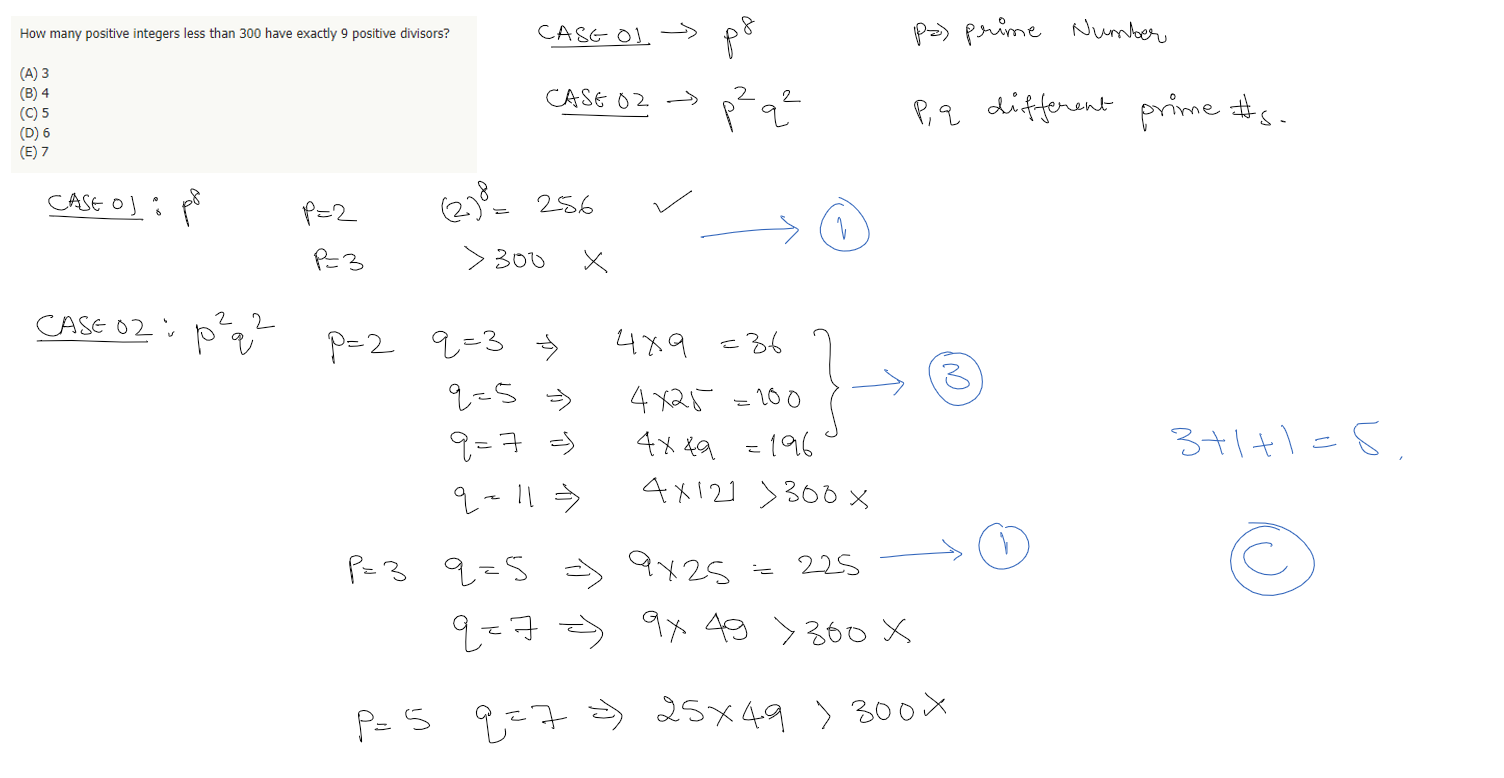 How many positive integers less than 300 have exactly 9 positive divisors?
(A) 3
(B) 4
(C) 5
(D) 6
(E) 7
CASE 01 → p⁸ p⇒ prime Number
CASE 02 → p²q² P,q different prime #s.
CASE 01 : p⁸ p=2 (2)⁸ = 256 ✓ → 1
P=3 >300 X
CASE 02 : p²q² p=2 q=3 ⇒ 4x9 = 36
q=5 ⇒ 4x25 = 100 → 3
q=7 ⇒ 4x49 = 196
3+1+1 = 5.
q=11 ⇒ 4x121 >300 X
P=3 q=5 ⇒ 9x25 = 225 → 1
C
q=7 ⇒ 9x 49 >300 X
P=5 q=7 ⇒ 25x49 > 300 X